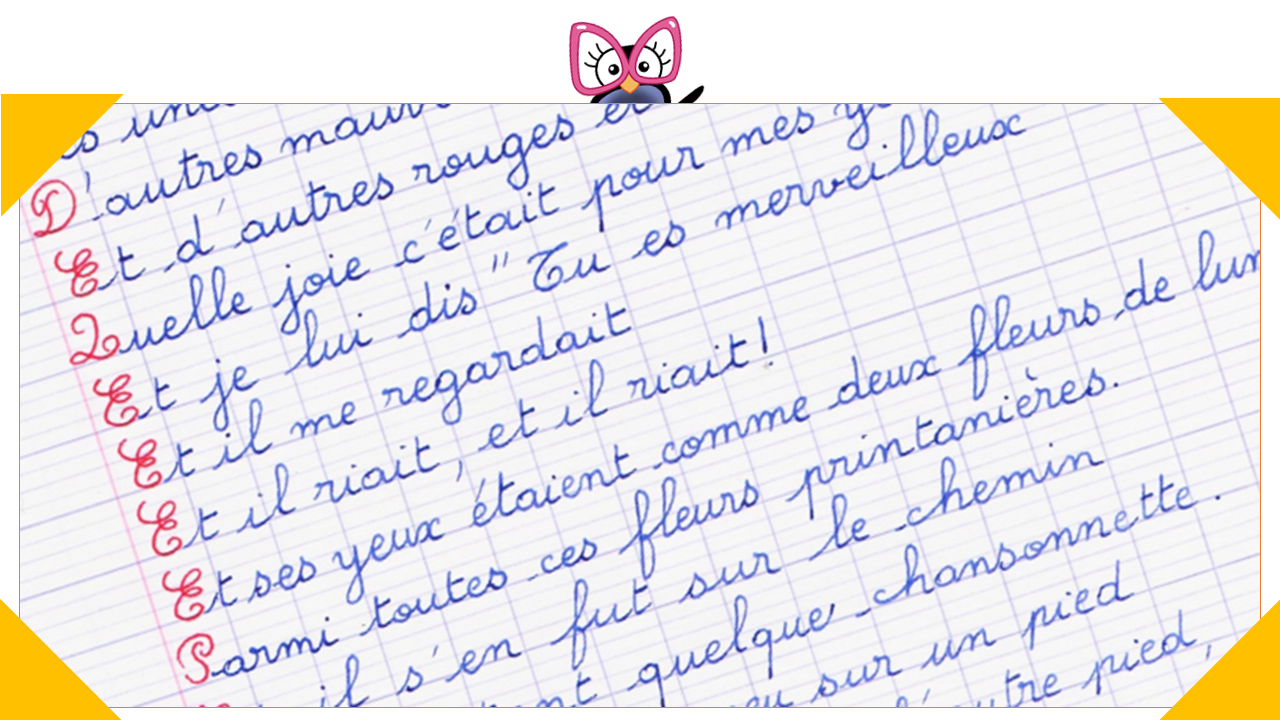 D'autres
Et d'autres rouges et
Quelle joie c'était pour mes
Et je lui dis " Tu es merveilleux
Et il me regardait
Et il riait, et il riait!
Et ses yeux étaient comme deux fleurs de
Parmi toutes ces fleurs printanières.
il s'en fut sur le chemin
quelque chansonnette.
sur un pied
pied,